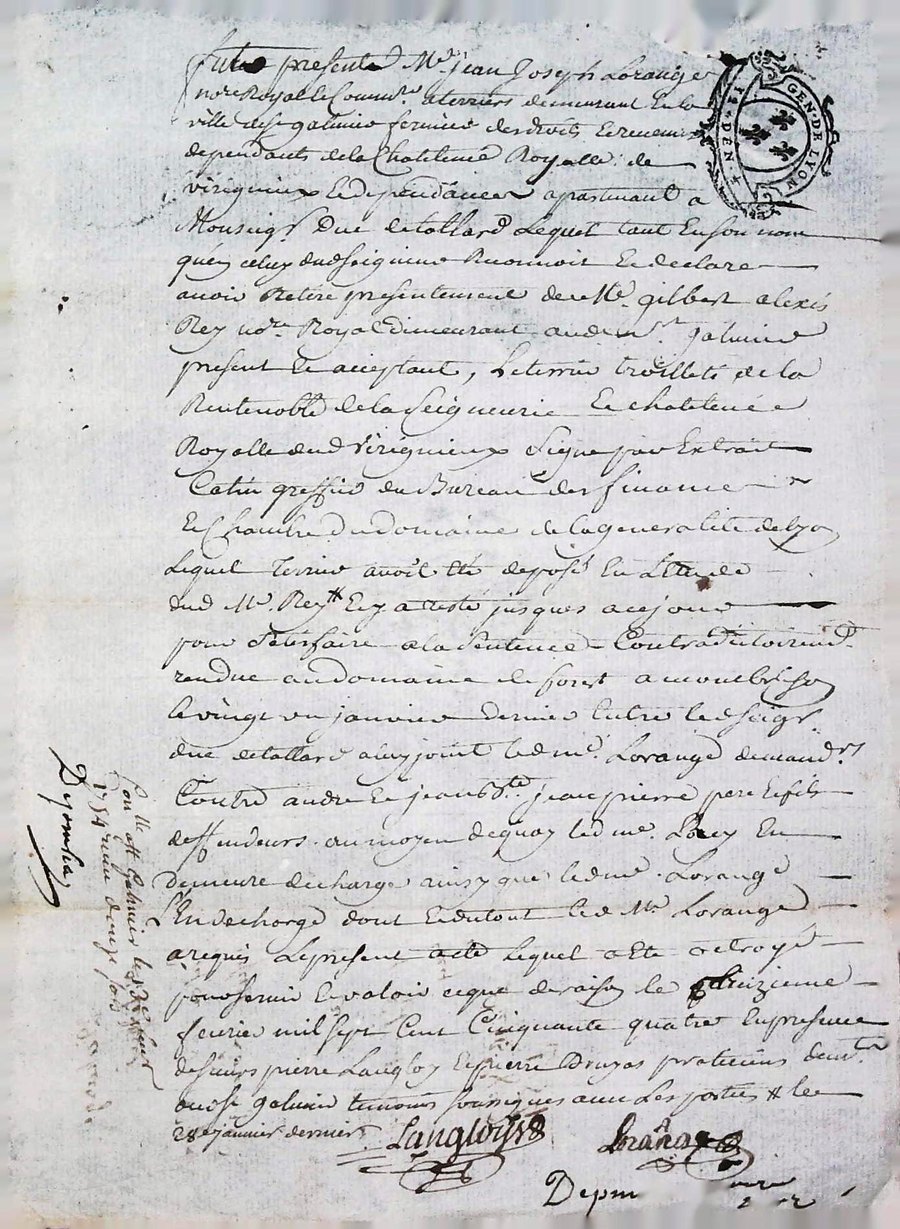 fut presente Me jean Joseph Lorange
nore Royal Commre a terriers demeurant En la
ville de st galmier fermier des droits Et revenus
dependants de la Chatelenie Royalle de
virigneux Et dependances apartenant a
Monseigr duc de tallard Lequel tant En son nom
qu'en celuy dud seigneur Reconnoit Et declare
avoir Retiré presentement de Me gilbert alexis
Rey nore Royal demeurant aud st galmier
present Et acceptant, Le terrier de la
Rente noble de la Seigneurie Et chatelenie
Royalle dud Virigneux Signe par Extrait
Catin greffier du Bureau des finances
Et Chambre du domaine de la generalité de Lyon
Lequel Terrier avoit été deposé En L'Etude
dud Me Rey # Et y a resté jusques a ce jour
pour Satisfaire a la Sentence Contradictoiremt
rendue au domaine de forest a montbrison
le vingt un janvier dernier Entre led seigr
duc de tallard a luy joint led me. Lorange demandrs
Contre andre Et jean Bte jean pierre pere Et fils
deffendeurs. au moyen de quoy led me. Rey En
Demeure decharge ainsy que led me. Lorange
En decharge dont Et du tout led Me Lorange
a requis Le present acte Lequel a Eté octroyé
pour servir Et valoir ce que de raison le quinzieme
fevrier mil sept Cent Cinquante quatre En presence
de sieurs pierre Langlois Et pierre Druyas praticiens demrts
aud st galmier temoins soussignes avec Les parties # le
28e janvier dernier
Langlois
Lorange
GEN · DE LYON
DEN
1754
douze sols